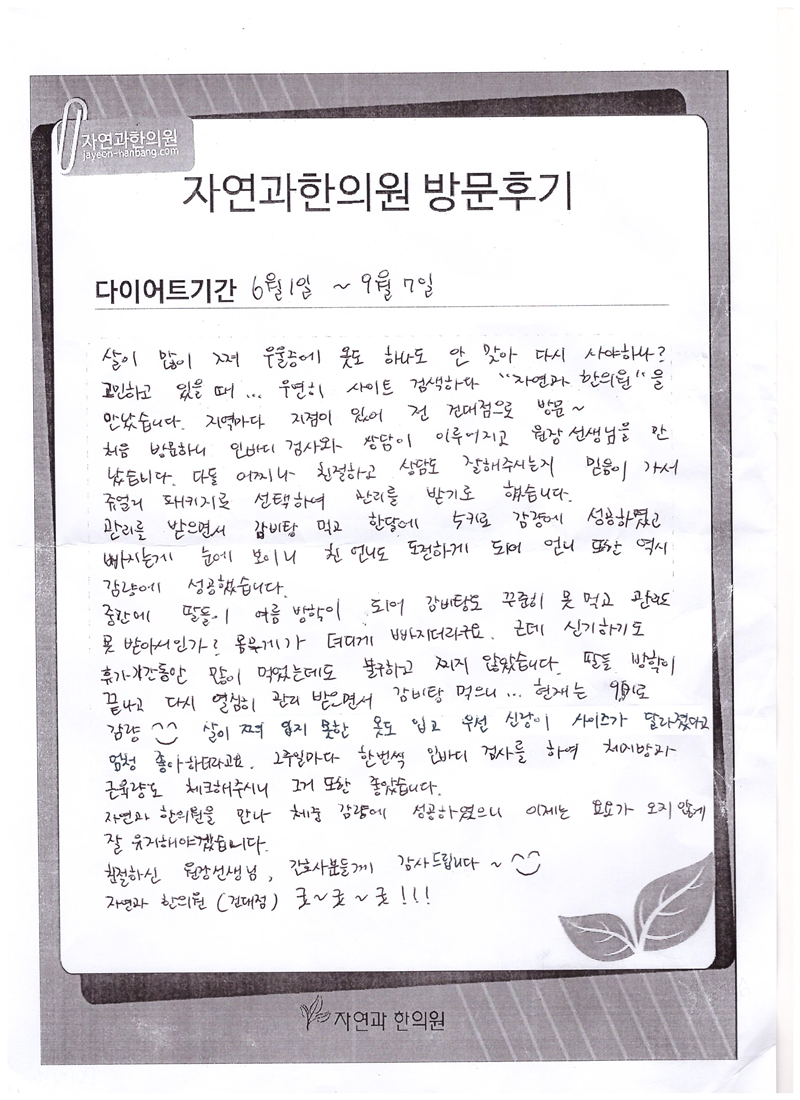 자연과한의원
jayeon-hanbang.com
자연과한의원 방문후기
다이어트기간 6월1일 ~ 9월 7일
살이 많이 쪄 우울증에 옷도 하나도 안 맞아 다시 사야하나?
고민하고 있을 때... 우연히 사이트 검색하다 "자연과 한의원"을
만났습니다. 지역마다 지점이 있어 전 건대점으로 방문~
처음 방문하니 인바디 검사와 상담이 이루어지고 원장 선생님을 만
났습니다. 다들 어찌나 친절하고 상담도 잘해주시는지 믿음이 가서
쥬얼리 패키지로 선택하여 관리를 받기로 했습니다.
관리를 받으면서 감비탕 먹고 한달에 4키로 감량에 성공하였고
빠지는게 눈에 보이니 친 언니도 도전하게 되어 언니 또한 역시
감량에 성공했습니다.
중간에 딸들이 여름 방학이 되어 감비탕도 꾸준히 못 먹고 관리도
못 받아서인가? 몸무게가 더디게 빠지더라구요. 근데 신기하기도
휴가기간동안 많이 먹었는데도 불구하고 찌지 않았습니다. 딸들 방학이
끝나고 다시 열심히 관리 받으면서 감비탕 먹으니... 현재는 9키로
감량 살이 쪄 입지 못한 옷도 입고 우선 신랑이 사이즈가 달라졌다고
엄청 좋아하더라고요. 2주일마다 한번씩 인바디 검사를 하여 체지방과
근육량도 체크해주시니 그거 또한 좋았습니다.
자연과 한의원을 만나 체중 감량에 성공하였으니 이제는 요요가 오지 않게
잘 유지해야겠습니다.
친절하신 원장선생님, 간호사분들께 감사드립니다~
자연과 한의원 (건대점) 굿~굿~굿!!!
자연과 한의원